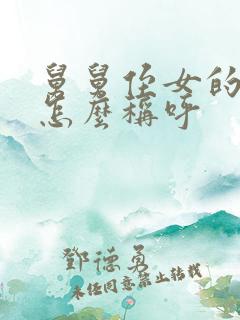 舅舅侄女的
怎麼稱呼
鄧德勇
未经同意禁止转载